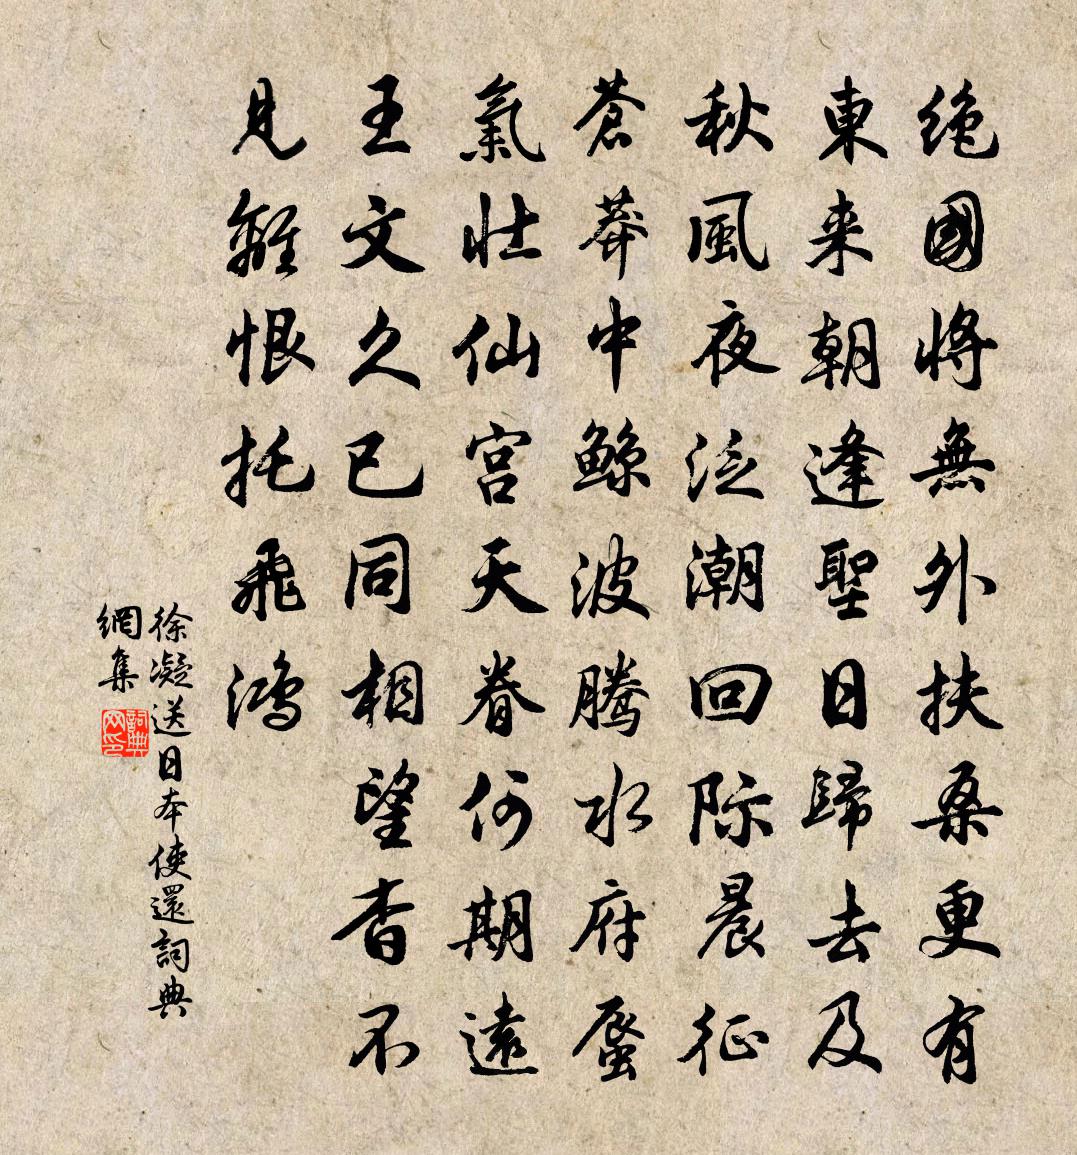 絶國將無外扶桑更有
東来朝逢聖日歸去及
秋風夜泛潮回际晨征
蒼莽中鲸波腾水府蜃
氣壯仙宫天眷何期遠
王文久已同相望杳不
見離恨托飛鴻
徐凝送日本使還詞典
網集
詞典网印